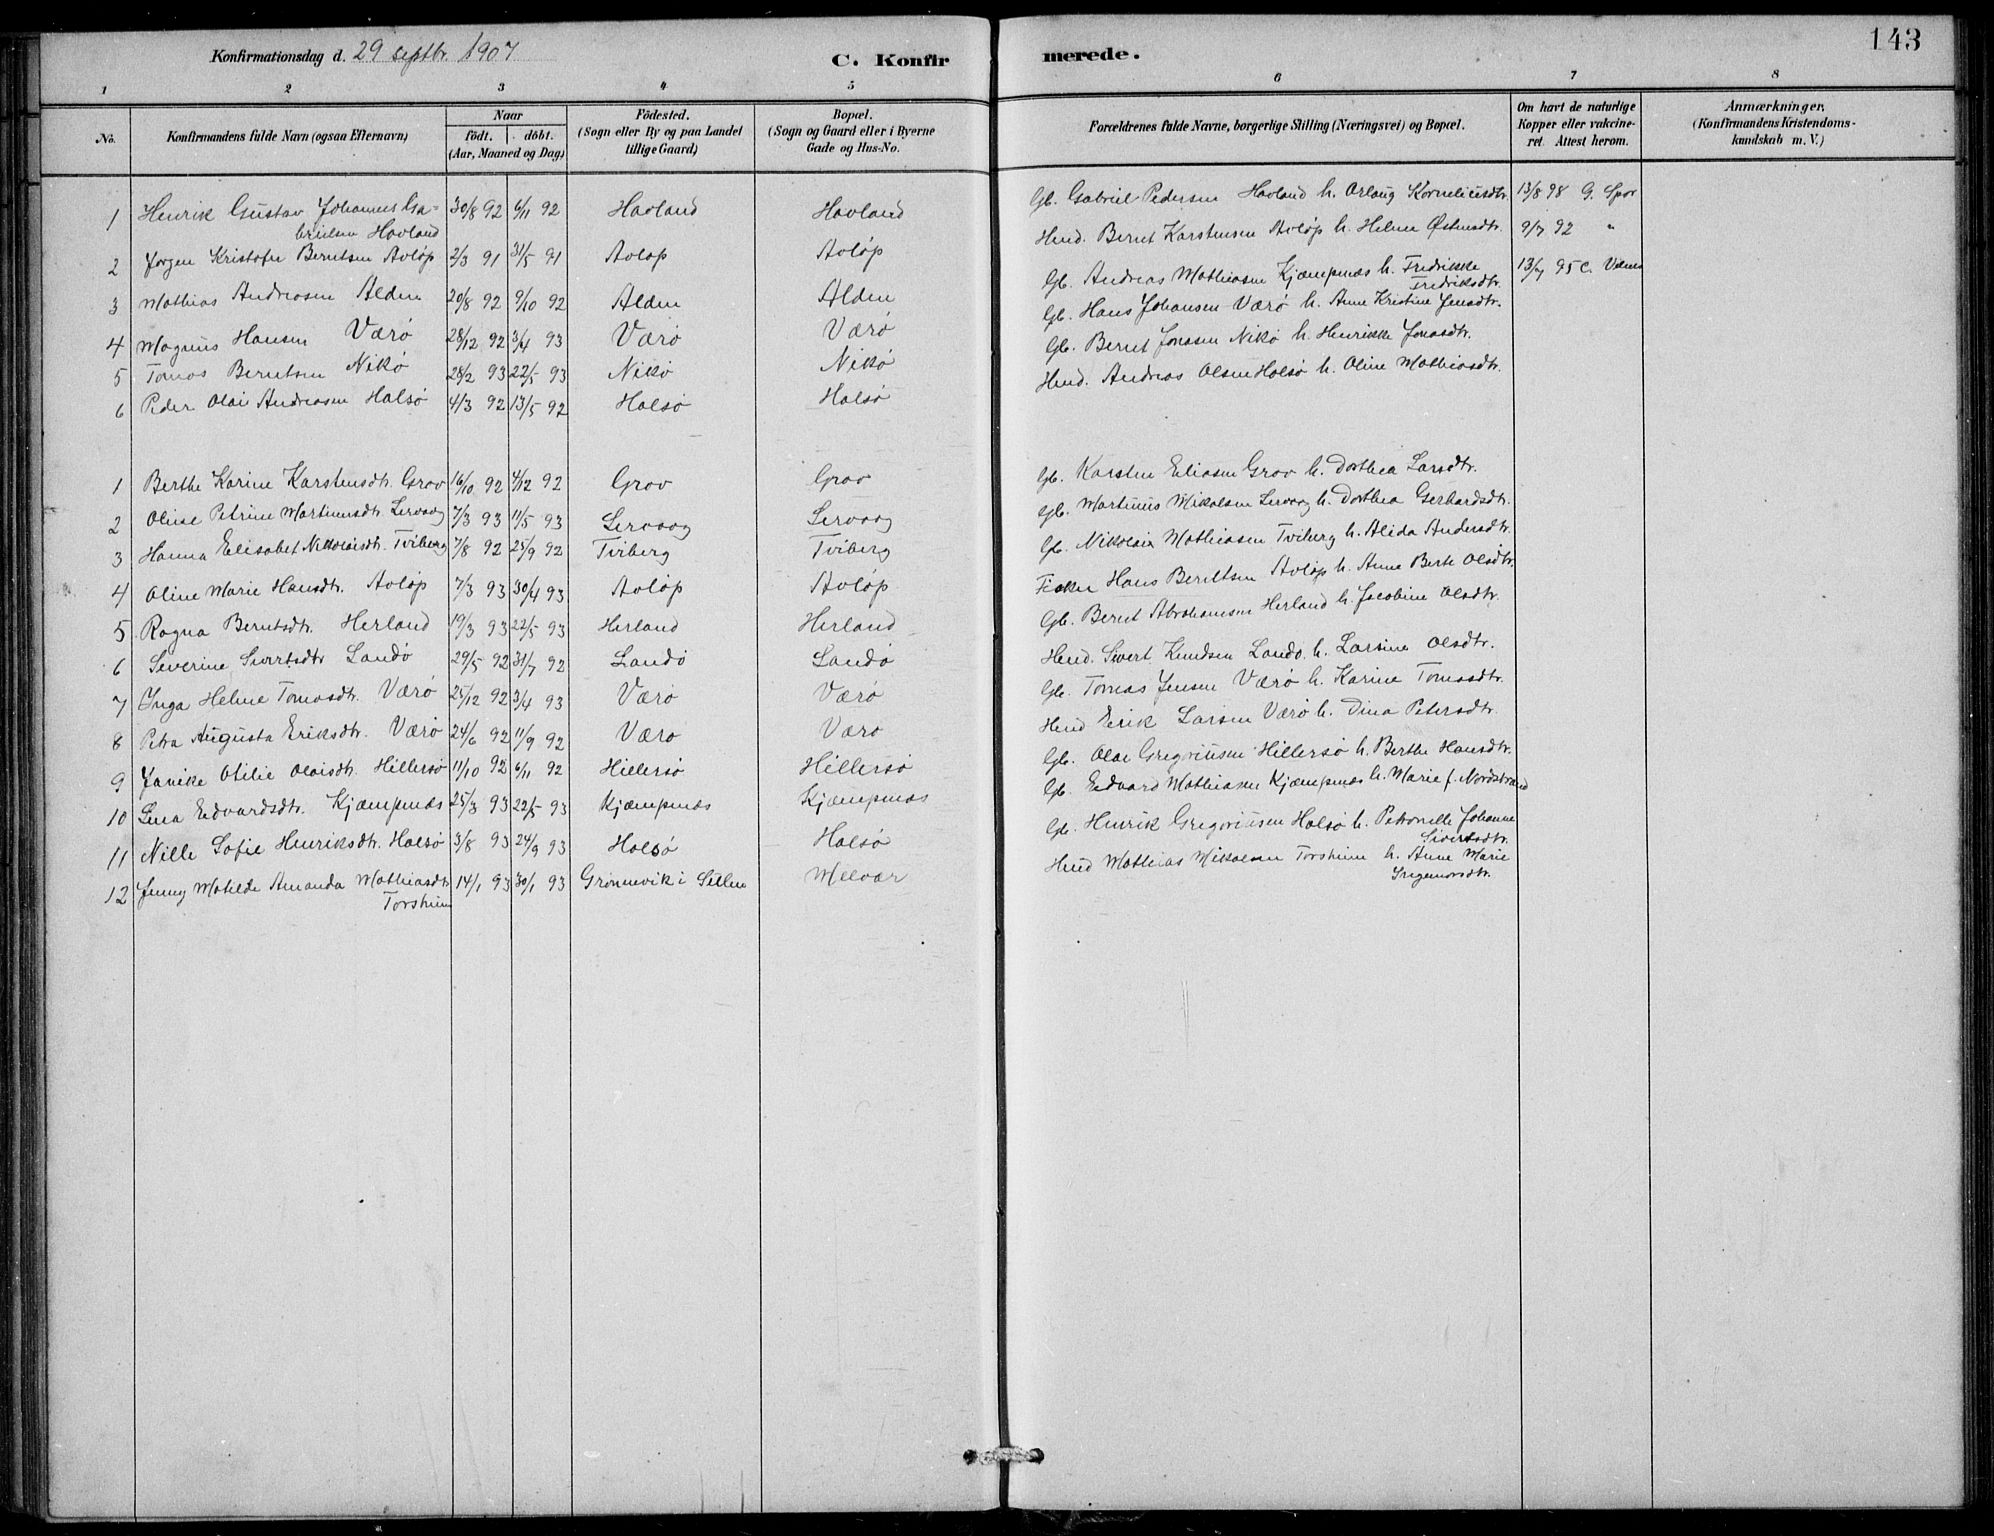 143
Konfirmationsdag d. 29 septbr. 1907
C. Konfirmerede.
1 2 3 4 5 6 7 8
No.
Konfirmandens fulde Navn (ogsaa Efternavn)
Naar
födt. döbt.
(Aar, Maaned og Dag)
Födested.
(Sogn eller By og paa Landet
tillige Gaard)
Bopæl.
(Sogn og Gaard eller i Byerne
Gade og Hus-No.
Forældrenes fulde Navne, borgerlige Stilling (Næringsvei) og Bopæl.
Om havt de naturlige
Kopper eller vakcine-
ret. Attest herom.
Anmærkninger,
(Konfirmandens Kristendoms-
kundskab m. V.)
1 Henrik Gustav Johannes Ga- 30/8 92 6/11 92 Havland Havland Gb. Gabriel Pedersen Havland h. Orlaug Korneliusdtr. 13/8 98 G. Spor
brielsen Havland
2 Jørgen Kristofer Berntsen Avløp 2/3 91 31/5 91 Avløp Avløp Husd. Bernt Karstensen Avløp h. Helene Østensdtr. 9/7 92 "
3 Mathias Andreasen Alden 20/8 92 9/10 92 Alden Alden Gb. Andreas Mathiasen Kjæmpenæs h. Fredrikke 13/7 95 C.
Fredriksdtr.
4 Magnus Hansen Værø 28/12 92 3/4 93 Værø Værø Gb. Hans Johansen Værø h. Anne Kristine Jensdtr.
5 Tomas Berntsen Nikø 28/2 93 22/5 93 Nikø Nikø Gb. Bernt Jonasen Nikø h. Henrikke Jonasdtr.
6 Peder Olai Andreasen Halsø 4/3 92 13/5 92 Halsø Halsø Husd. Andreas Olsen Halsø h. Oline Mathiasdtr.
1 Berthe Karine Karstensdtr. Grov 16/10 92 4/12 92 Grov Grov Gb. Karsten Eliasen Grov h. Dorthea Larsdtr.
2 Oline Petrine Martinusdtr. Lervaag 7/3 93 11/5 93 Lervaag Lervaag Gb. Martinus Mikalsen Lervaag h. Dorthea Gerhardsdtr.
3 Hanna Elisabet Nikolaisdtr. Tviberg 7/8 92 25/9 92 Tviberg Tviberg Gb. Nikolai Mathiasen Tviberg h. Alida Andersdtr.
4 Oline Marie Hansdtr. Avløp 7/3 93 30/4 93 Avløp Avløp Fisker Hans Berntsen Avløp h. Anne Berte Olsdtr.
5 Ragna Berntsdtr. Herland 19/3 93 22/5 93 Herland Herland Gb. Bernt Abrahamsen Herland h. Jacobine Olsdtr.
6 Severine Sivertsdtr Landø 29/5 92 31/7 92 Landø Landø Husd. Sivert Knudsen Landø h. Larsine Olsdtr.
7 Inga Helene Tomasdtr. Værø 25/12 92 3/4 93 Værø Værø Gb. Tomas Jensen Værø h. Karine Tomasdtr.
8 Petra Augusta Eriksdtr. Værø 24/6 92 11/9 92 Værø Værø Husd Erik Larsen Værø h. Dina Petersdtr.
9 Janike Otilie Olaisdtr. Hillersø 11/10 92 6/11 92 Hillersø Hillersø Gb. Olai Gregoriusen Hillersø h. Berthe Hansdtr.
10 Lina Edvardsdtr. Kjæmpenæs 25/3 93 22/5 93 Kjæmpenæs Kjæmpenæs Gb. Edvard Mathiasen Kjæmpenæs h. Marie f. Nordstrand
11 Nille Sofie Henriksdtr. Halsø 3/8 93 24/9 93 Halsø Halsø Gb. Henrik Gregoriusen Halsø h. Petronelle Johanne
Sivertsdtr.
12 Jenny Matilde Amanda Mathiasdtr 14/1 93 30/1 93 Grønnevik i Melvær Husd Mathias Mikalsen Torsheim h. Anne Marie
Torsheim Ingemorsdtr.